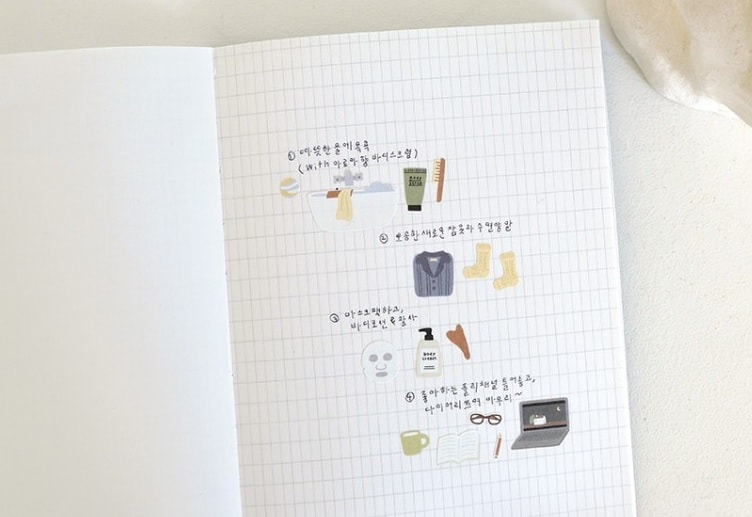 ① 따뜻한 물에 목욕
(with 아로마 향 바디스크럽)
② 뽀송한 새로운 잠옷과 수면양말
③ 마스크팩하고,
바디로션 & 괄사
④ 좋아하는 플리 채널 틀어놓고,
다이어리 쓰며 마무리~
body
cream